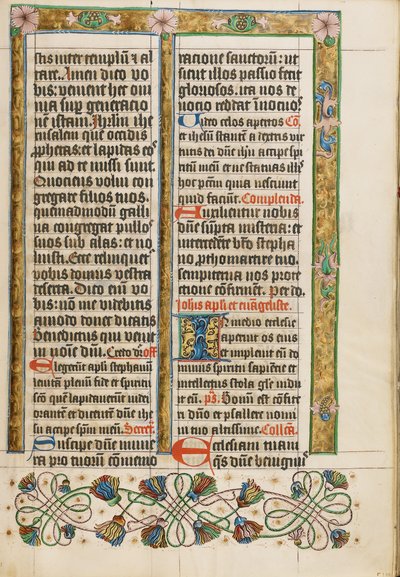 stis inter templū et al
tare. Amen dico vo
bis: venient hec om
nia sup generacio
nē istam. Ihrlm ihe
rusalem que occidis
prphetas: et lapidas eos
qui ad te missi sunt.
Quociens volui con
gregare filios tuos.
quemadmodū galli
na congregat pullos
suos sub alas: et no
luisti. Ecce relinquet᷑
vobis domus vestra
deserta. Dico em̄ vo
bis: non me videbitis
amodo donec dicatis
Benedictus qui venit
in noīe dm̄i. Credo dr̄ off
Elegerunt apli stephanum
levitā plenū fide et spiritu
scō quē lapidaverunt iudei
orantē et dicentē dn̄e ihe
su accipe spm̄ meū. Secret.
Suscipe dn̄e mune
ra pro tuorū cōmemo
racione sanctorum: ut
sicut illos passio fecit
gloriosos. ita nos de
uocio reddat īnocuos.
Video celos apertos Cō
et ihesū stantē a dextris vir
tutis dei dn̄e ihū accipe spi
ritū meū et ne statuas illis
hoc pctm̄ quia nesciunt
quid faciunt. Complenda.
Auxilientur nobis
dn̄e sūpta misteria: et
intercedēte bt̄o stepha
no, pthomartire tuo.
sempiterna nos prote
ctione cōfirment. Per do.
Iohis apli et ewāngeliste.
In medio ecclesie
aperuit os eius
et implevit eū do
minus spiritu sapientie et
intellectus stola glīe indu
it eū. ps. Bonū est cōfite
ri dn̄o et psallere nomi
ni tuo altissime. Collcā.
Ecclesiam tuam
qs̄ dn̄e benignus